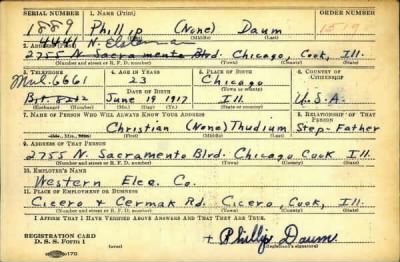 SERIAL NUMBER 1. NAME (Print) ORDER NUMBER
1889 Phillip (None) Daum 1519
(First) (Middle) (Last)
4441 N.
2. ADDRESS (Print)
2755 N Sacramento Blvd. Chicago, Cook, Ill.
(Number and street or R. F. D. number) (Town) (County) (State)
3. TELEPHONE 4. AGE IN YEARS 5. PLACE OF BIRTH 6. COUNTRY OF CITIZENSHIP
6661 23 Chicago
DATE OF BIRTH (Town or county)
June 19 1917 Ill. U.S.A.
(Exchange) (Number) (Mo.) (Day) (Yr.) (State or country)
7. NAME OF PERSON WHO WILL ALWAYS KNOW YOUR ADDRESS 8. RELATIONSHIP OF THAT PERSON
Christian (None) Thudium Step-Father
(Mr., Mrs., Miss) (First) (Middle) (Last)
9. ADDRESS OF THAT PERSON
2755 N. Sacramento Blvd. Chicago Cook Ill
(Number and street or R. F. D. number) (Town) (County) (State)
10. EMPLOYER'S NAME
Western Elec. Co.
11. PLACE OF EMPLOYMENT OR BUSINESS
Cicero + Cermak Rd. Cicero, Cook, Ill.
(Number and street or R. F. D. number) (Town) (County) (State)
I AFFIRM THAT I HAVE VERIFIED ABOVE ANSWERS AND THAT THEY ARE TRUE.
REGISTRATION CARD
D. S. S. Form 1 (over) + Phillip Daum
(Registrant's signature)